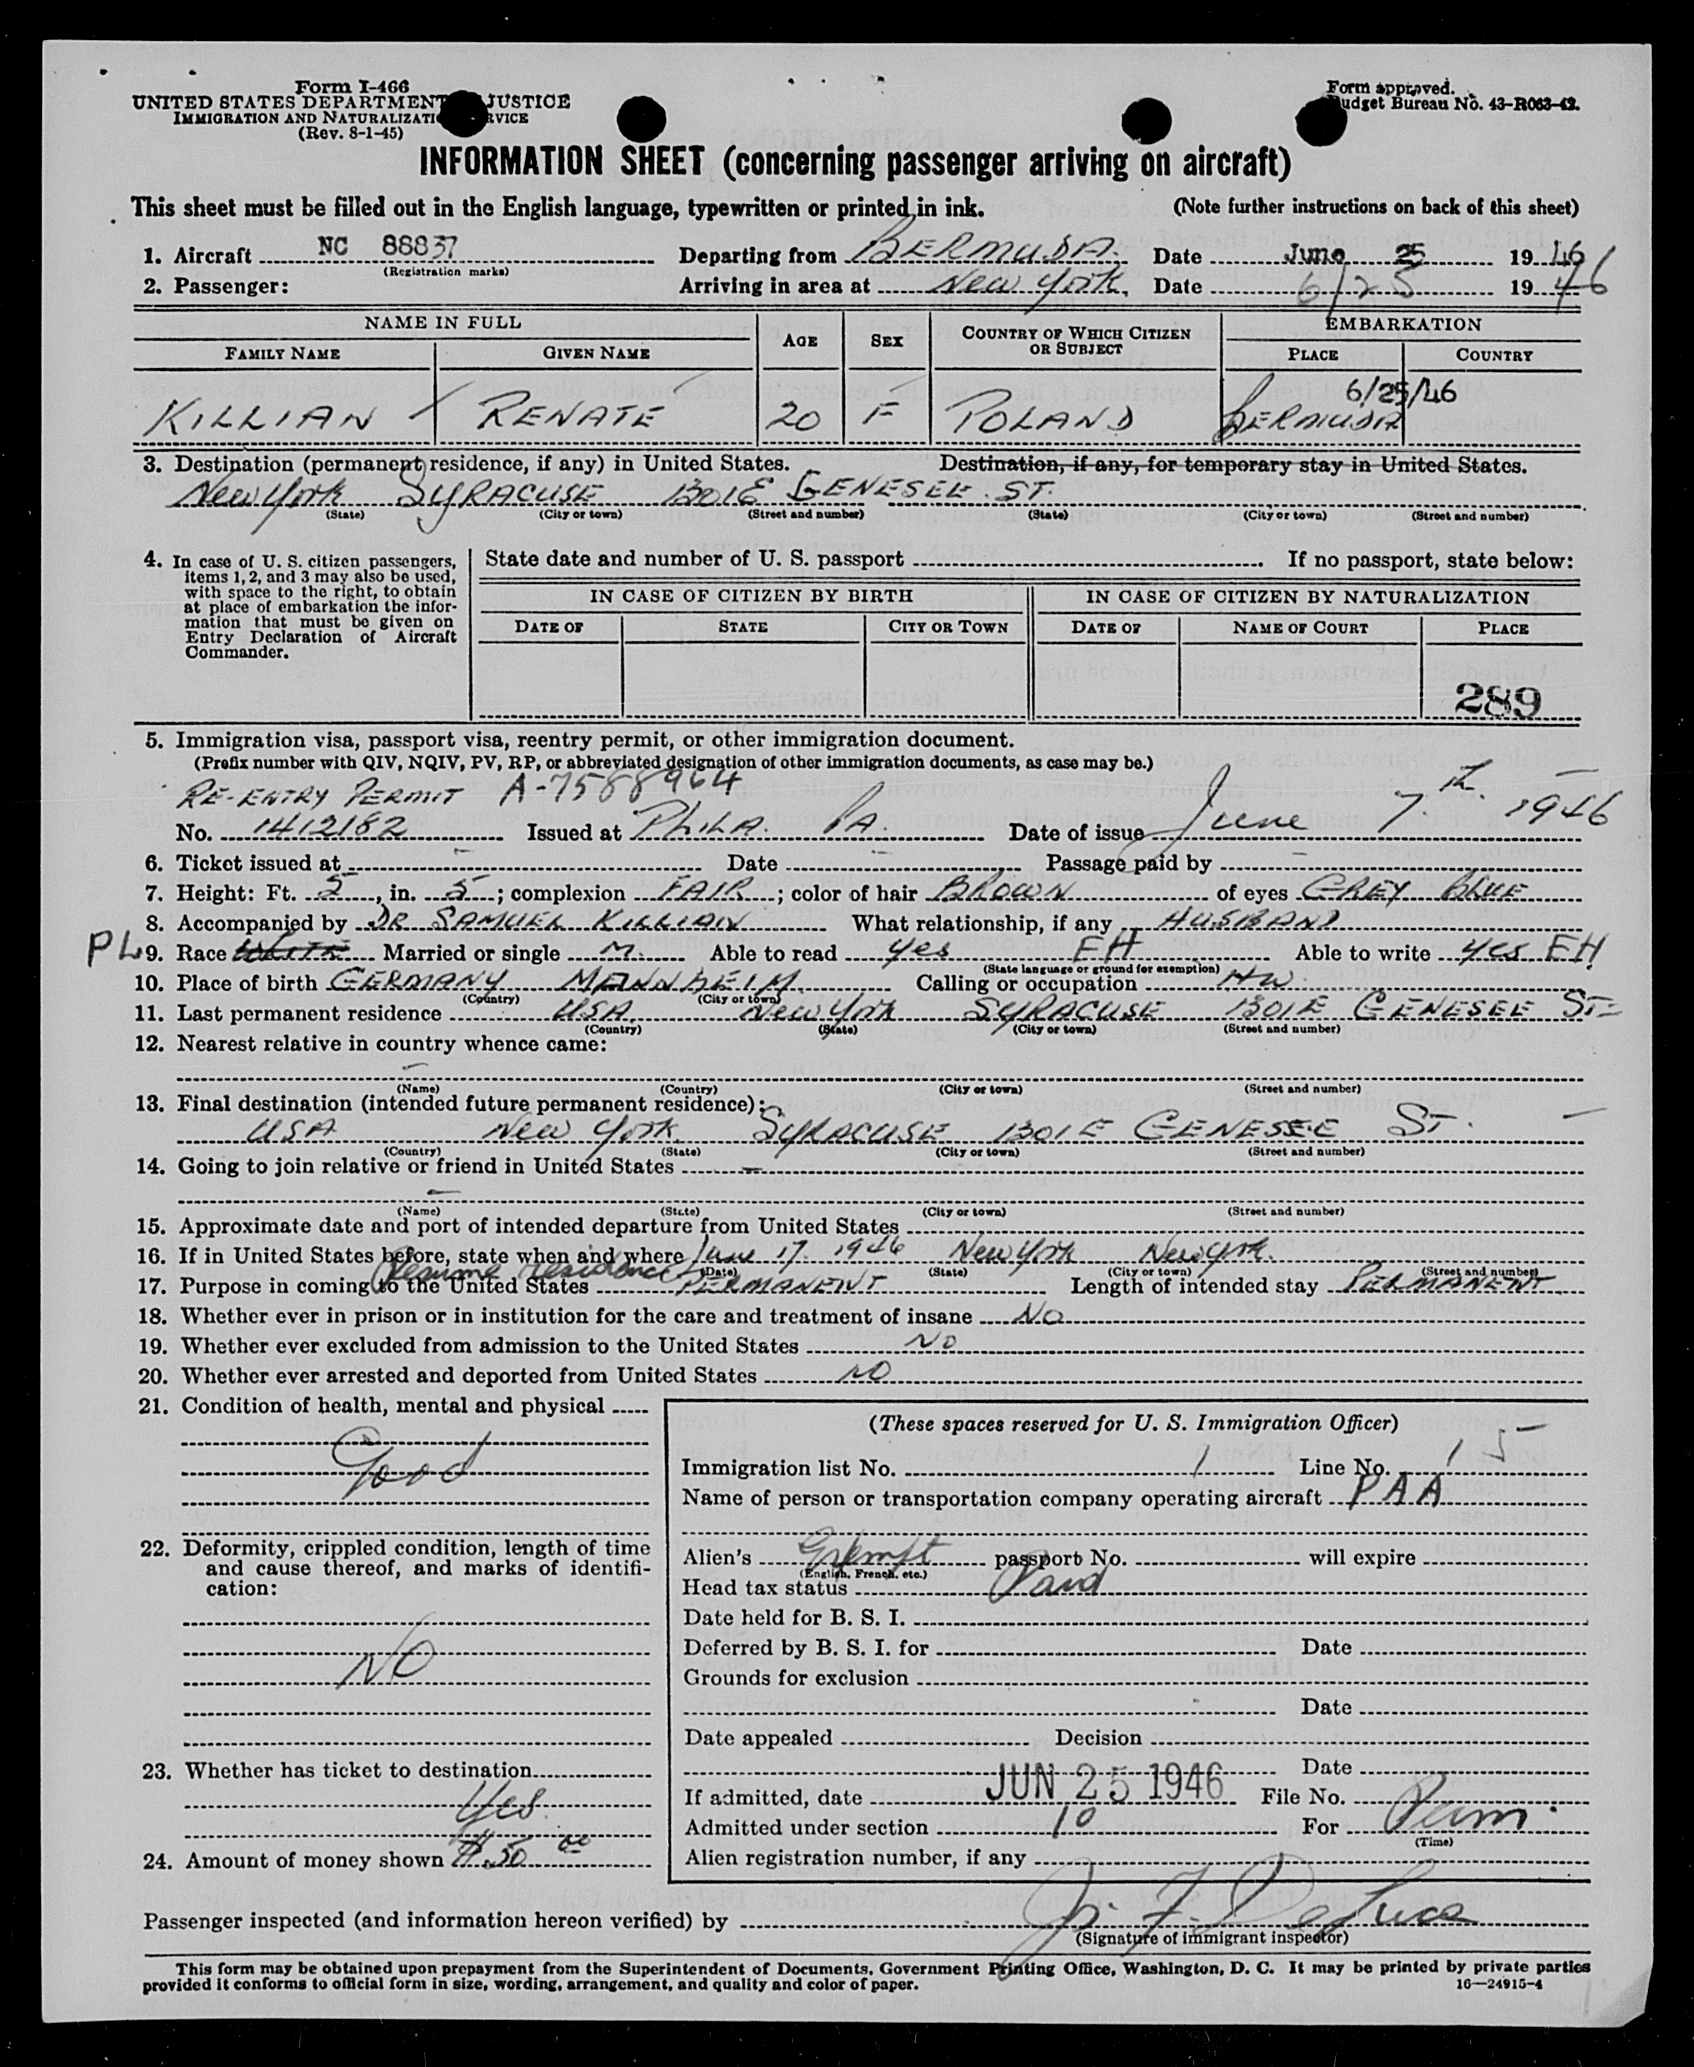 Form I-466
UNITED STATES DEPARTMENT JUSTICE
IMMIGRATION AND NATURALIZATI RVICE
(Rev. 8-1-45)
Form approved.
udget Bureau No. 43-R063-42.
INFORMATION SHEET (concerning passenger arriving on aircraft)
This sheet must be filled out in the English language, typewritten or printed in ink. (Note further instructions on back of this sheet)
1. Aircraft NC 88837 Departing from BERMUDA. Date June 25 1946
(Registration marks)
2. Passenger: Arriving in area at New York, Date 6/25 1946
NAME IN FULL AGE SEX COUNTRY OF WHICH CITIZEN OR SUBJECT EMBARKATION
FAMILY NAME GIVEN NAME PLACE COUNTRY
6/25/46
KILLIAN RENATE 20 F POLAND BERMUDA
3. Destination (permanent residence, if any) in United States. Destination, if any, for temporary stay in United States.
New York SYRACUSE 1301 E GENESEE ST.
(State) (City or town) (Street and number) (State) (City or town) (Street and number)
4. In case of U. S. citizen passengers, items 1, 2, and 3 may also be used, with space to the right, to obtain at place of embarkation the information that must be given on Entry Declaration of Aircraft Commander.
State date and number of U. S. passport . If no passport, state below:
IN CASE OF CITIZEN BY BIRTH IN CASE OF CITIZEN BY NATURALIZATION
DATE OF STATE CITY OR TOWN DATE OF NAME OF COURT PLACE
289
5. Immigration visa, passport visa, reentry permit, or other immigration document.
(Prefix number with QIV, NQIV, PV, RP, or abbreviated designation of other immigration documents, as case may be.)
RE-ENTRY PERMIT A-7588964
No. 1412182 Issued at PHILA. PA. Date of issue June 7th. 1946
6. Ticket issued at - Date - Passage paid by -
7. Height: Ft. 5, in. 5; complexion FAIR; color of hair BROWN of eyes GREY BLUE
8. Accompanied by DR SAMUEL KILLIAN What relationship, if any HUSBAND
PL 9. Race WHITE Married or single M. Able to read yes EH Able to write yes EH
(State language or ground for exemption)
10. Place of birth GERMANY MANNHEIM. Calling or occupation HW.
(Country) (City or town)
11. Last permanent residence USA New York SYRACUSE 1301 E GENESEE ST
(Country) (State) (City or town) (Street and number)
12. Nearest relative in country whence came:
-
(Name) (Country) (City or town) (Street and number)
13. Final destination (intended future permanent residence):
USA New York SYRACUSE 1301 E GENESEE ST. -
(Country) (State) (City or town) (Street and number)
14. Going to join relative or friend in United States -
-
(Name) (State) (City or town) (Street and number)
15. Approximate date and port of intended departure from United States
16. If in United States before, state when and where June 17. 1946 New York New York.
(Date) (State) (City or town) (Street and number)
Resume residence
17. Purpose in coming to the United States PERMANENT Length of intended stay PERMANENT
18. Whether ever in prison or in institution for the care and treatment of insane No
19. Whether ever excluded from admission to the United States NO
20. Whether ever arrested and deported from United States NO
21. Condition of health, mental and physical
Good
22. Deformity, crippled condition, length of time
and cause thereof, and marks of identifi-
cation:
NO
23. Whether has ticket to destination
Yes
24. Amount of money shown $ 50 00
(These spaces reserved for U. S. Immigration Officer)
Immigration list No. 1 Line No. 15
Name of person or transportation company operating aircraft PAA
Alien's Exempt passport No. will expire
(English, French, etc.)
Head tax status Paid
Date held for B. S. I.
Deferred by B. S. I. for Date
Grounds for exclusion
Date
Date appealed Decision
Date
If admitted, date JUN 25 1946 File No.
Admitted under section 10 For Perm.
(Time)
Alien registration number, if any
Passenger inspected (and information hereon verified) by J. F. DeLuca
(Signature of immigrant inspector)
This form may be obtained upon prepayment from the Superintendent of Documents, Government Printing Office, Washington, D. C. It may be printed by private parties
provided it conforms to official form in size, wording, arrangement, and quality and color of paper. 16—24915-4